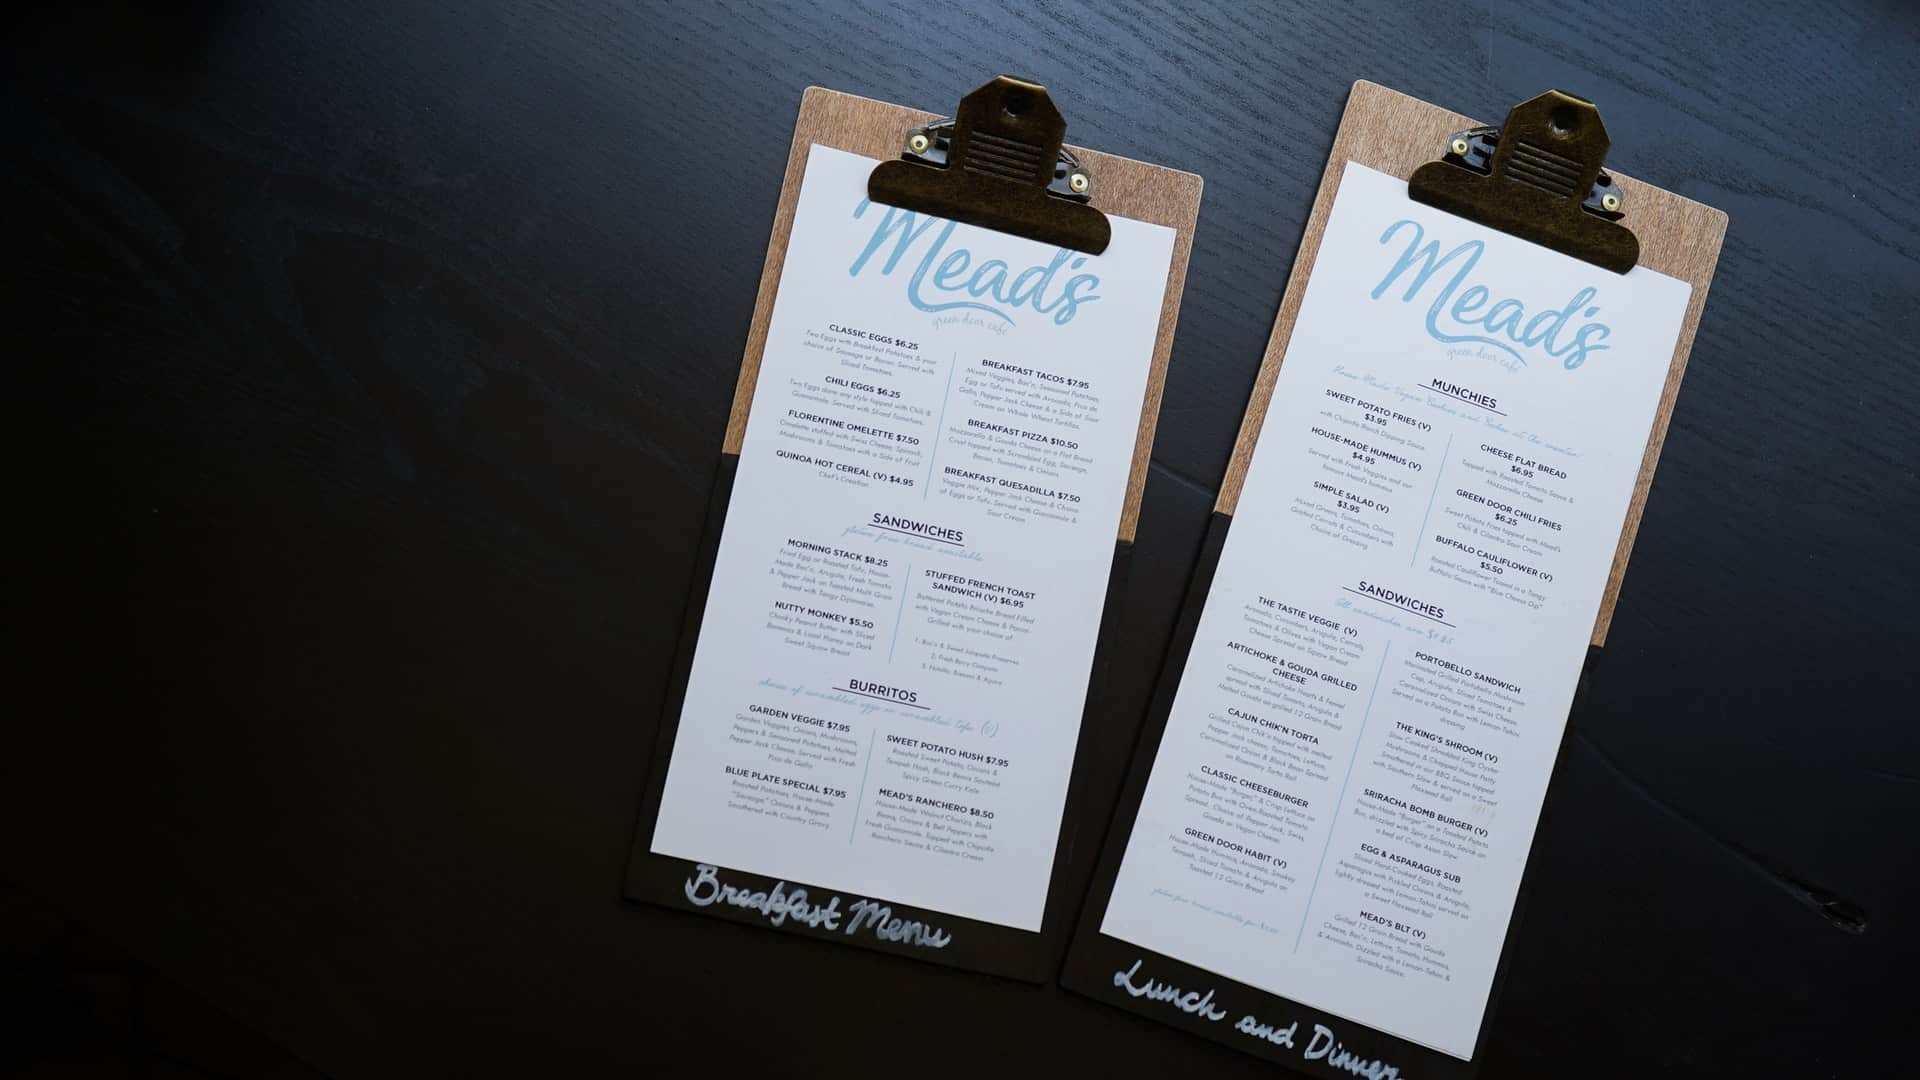 Mead's
green door cafe
CLASSIC EGGS $6.25
Two Eggs with Breakfast Potatoes & your
choice of Sausage or Bacon. Served with
Sliced Tomatoes.
CHILI EGGS $6.25
Two Eggs done any style topped with Chili &
Guacamole. Served with Sliced Tomatoes.
FLORENTINE OMELETTE $7.50
Omelette stuffed with Swiss Cheese, Spinach,
Mushrooms & Tomatoes with a Side of Fruit
QUINOA HOT CEREAL (V) $4.95
Chef's Creation
BREAKFAST TACOS $7.95
Mixed Veggies, Bac'n, Seasoned Potatoes,
Egg or Tofu served with Avocado, Pico de
Gallo, Pepper Jack Cheese & a Side of Sour
Cream on Whole Wheat Tortillas.
BREAKFAST PIZZA $10.50
Mozzarella & Gouda Cheese on a Flat Bread
Crust topped with Scrambled Egg, Sausage,
Bacon, Tomatoes & Onions.
BREAKFAST QUESADILLA $7.50
Veggie Mix, Pepper Jack Cheese & Choice
of Eggs or Tofu. Served with Guacamole &
Sour Cream
SANDWICHES
gluten free bread available
MORNING STACK $8.25
Fried Egg or Roasted Tofu, House-
Made Bac'n, Arugula, Fresh Tomato
& Pepper Jack on Toasted Multi Grain
Bread with Tangy Dijonnaise.
NUTTY MONKEY $5.50
Chunky Peanut Butter with Sliced
Bananas & Local Honey on Dark
Sweet Squaw Bread
STUFFED FRENCH TOAST
SANDWICH (V) $6.95
Battered Potato Brioche Bread Filled
with Vegan Cream Cheese &
Grilled with your choice of
1. Bac'n & Sweet Jalapeño Preserves
2. Fresh Berry Compote
3. Nutella, Banana & Agave
BURRITOS
choice of scrambled eggs or scrambled tofu (V)
GARDEN VEGGIE $7.95
Garden Veggies, Onions, Mushrooms,
Peppers & Seasoned Potatoes, Melted
Pepper Jack Cheese, Served with Fresh
Pico de Gallo
BLUE PLATE SPECIAL $7.95
Roasted Potatoes, House-Made
"Sausage," Onions & Peppers
Smothered with Country Gravy
SWEET POTATO HUSH $7.95
Roasted Sweet Potato, Onions &
Tempeh Hash, Black Beans Sautéed
Spicy Green Curry Kale
MEAD'S RANCHERO $8.50
House-Made Walnut Chorizo, Black
Beans, Onions & Bell Peppers with
Fresh Guacamole. Topped with Chipotle
Ranchero Sauce & Cilantro Cream
Breakfast Menu
Mead's
green door cafe
Home Made Vegan Cookies and Cakes at the counter!
MUNCHIES
SWEET POTATO FRIES (V)
$3.95
with Chipotle Ranch Dipping Sauce
HOUSE-MADE HUMMUS (V)
$4.95
Served with Fresh Veggies and our
House Mead's hummus
SIMPLE SALAD (V)
$3.95
Mixed Greens, Tomatoes, Onions,
Grated Carrots & Cucumbers with
Choice of Dressing
CHEESE FLAT BREAD
$6.95
Topped with Roasted Tomato Sauce &
Mozzarella Cheese
GREEN DOOR CHILI FRIES
$6.25
Sweet Potato Fries topped with Mead's
Chili & Cilantro Sour Cream
BUFFALO CAULIFLOWER (V)
$5.50
Roasted Cauliflower Tossed in a Tangy
Buffalo Sauce with "Blue Cheese Dip"
SANDWICHES
All sandwiches are $9.25
THE TASTIE VEGGIE (V)
Avocado, Cucumbers, Arugula, Carrots,
Tomatoes & Olives with Vegan Cream
Cheese Spread on Squaw Bread
ARTICHOKE & GOUDA GRILLED
CHEESE
Caramelized Artichoke Hearts & Fennel
spread with Sliced Tomato, Arugula &
Melted Gouda on grilled 12 Grain Bread
CAJUN CHIK'N TORTA
Grilled Cajun Chik'n topped with melted
Pepper Jack cheese, Tomatoes, Lettuce,
Caramelized Onion & Black Bean Spread
on Rosemary Torta Roll
CLASSIC CHEESEBURGER
House-Made "Burger," & Crisp Lettuce on
Potato Bun with Oven Roasted Tomato
Spread. Choice of Pepper Jack, Swiss,
Gouda or Vegan Cheese.
GREEN DOOR HABIT (V)
House-Made Hummus, Avocado, Smokey
Tempeh, Sliced Tomato & Arugula on
Toasted 12 Grain Bread
gluten free bread available for
PORTOBELLO SANDWICH
Marinated Grilled Portobello Mushroom
Cap, Arugula, Sliced Tomatoes &
Caramelized Onions with Swiss Cheese.
Served on a Potato Bun with Lemon-Tahini
dressing
THE KING'S SHROOM (V)
Slow Cooked Shredded King Oyster
Mushrooms & Chopped House Patty
smothered in our BBQ Sauce topped
with Southern Slaw & served on a Sweet
Flaxseed Roll
SRIRACHA BOMB BURGER (V)
House-Made "Burger" on a Toasted Potato
Bun, drizzled with Spicy Sriracha Sauce on
a bed of Crisp Asian Slaw
EGG & ASPARAGUS SUB
Sliced Hard-Cooked Eggs, Roasted
Asparagus with Pickled Onions & Arugula,
lightly dressed with Lemon-Tahini served on
a Sweet Flaxseed Roll
MEAD'S BLT (V)
Grilled 12 Grain Bread with Gouda
Cheese, Bac'n, Lettuce, Tomato, Hummus,
& Avocado. Dizzled with a Lemon-Tahini &
Sriracha Sauce.
Lunch and Dinner